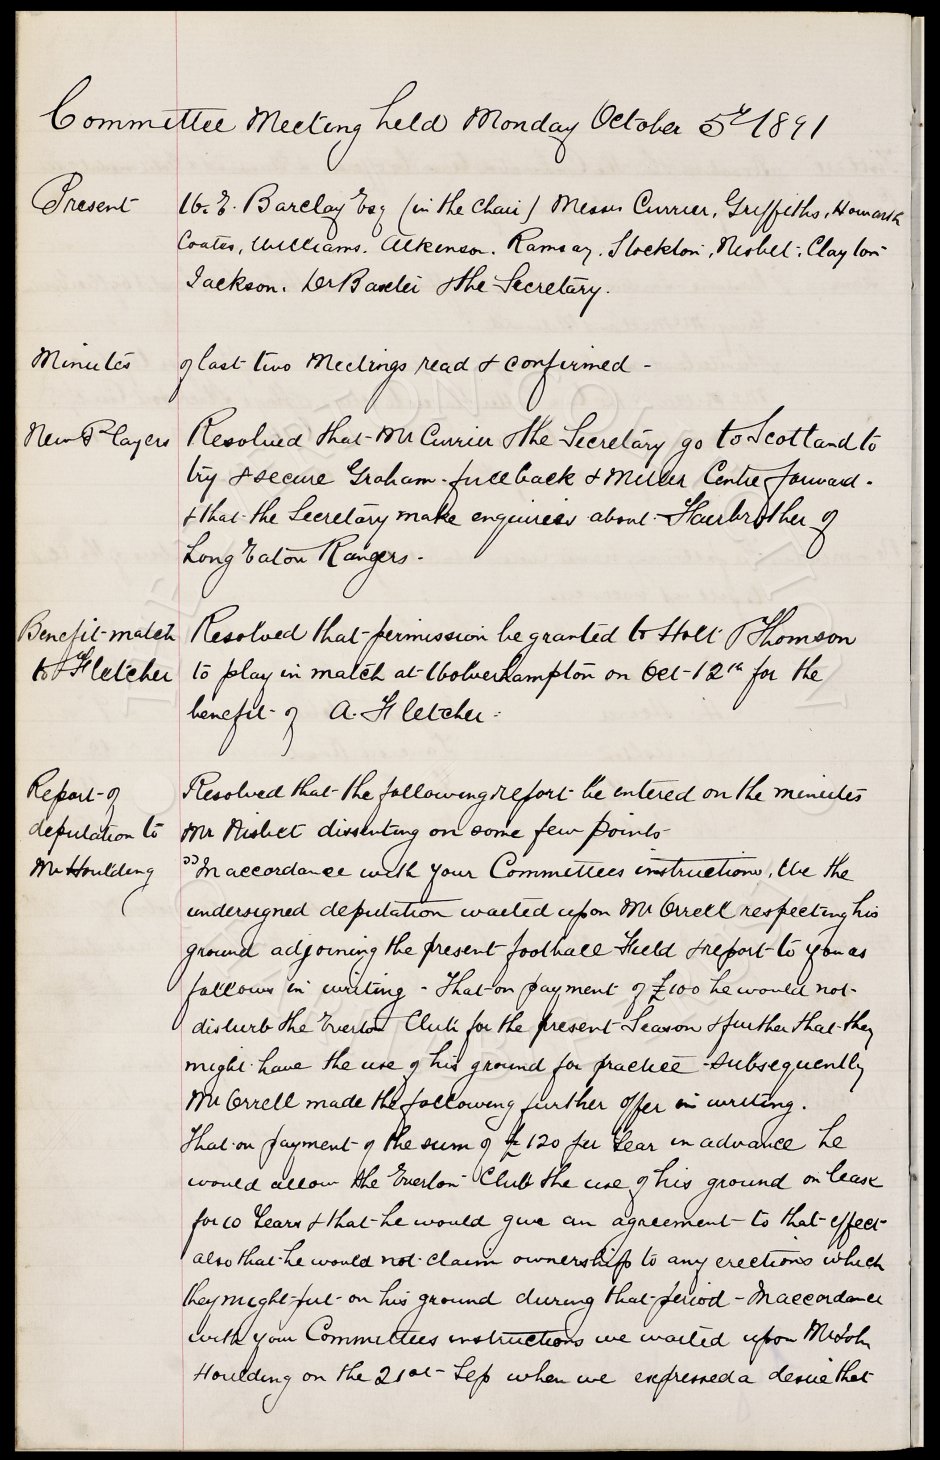 Committee Meeting held Monday October 5th 1891
Present
W. E. Barclay Esq (in the Chair) Messrs Currier, Griffiths, Howarth
Coates, Williams. Atkinson. Ramsay, Stockton, Nisbet, Clayton
Jackson. Dr Baxter & the Secretary.
Minutes
of last two Meetings read & confirmed -
New Players
Resolved that Mr Currier & the Secretary go to Scotland to
try & secure Graham - full back & Miller Centre forward -
& that the Secretary make enquiries about Fairbrother of
Long Eaton Rangers -
Benefit match
to A Fletcher
Resolved that permission be granted to Holt & Thomson
to play in match at Wolverhampton on Oct 12th for the
benefit of A. Fletcher -
Report of
deputation to
Mr Houlding
Resolved that the following report be entered on the minutes
Mr Nisbet dissenting on some few points -
"In accordance with your Committees instructions, We the
undersigned deputation waited upon Mr Orrell respecting his
ground adjoining the present football Field & report to you as
follows in writing - That on payment of £100 he would not
disturb the Everton Club for the present Season & further that they
might have the use of his ground for practice - Subsequently
Mr Orrell made the following further offer in writing.
That on payment of the sum of £120 per Year in advance he
would allow the Everton Club the use of his ground on lease
for 10 Years & that he would give an agreement to that effect
also that he would not claim ownership to any erections which
they might put on his ground during that period - In accordance
with your Committees instructions we waited upon Mr John
Houlding on the 21st Sep when we expressed a desire that